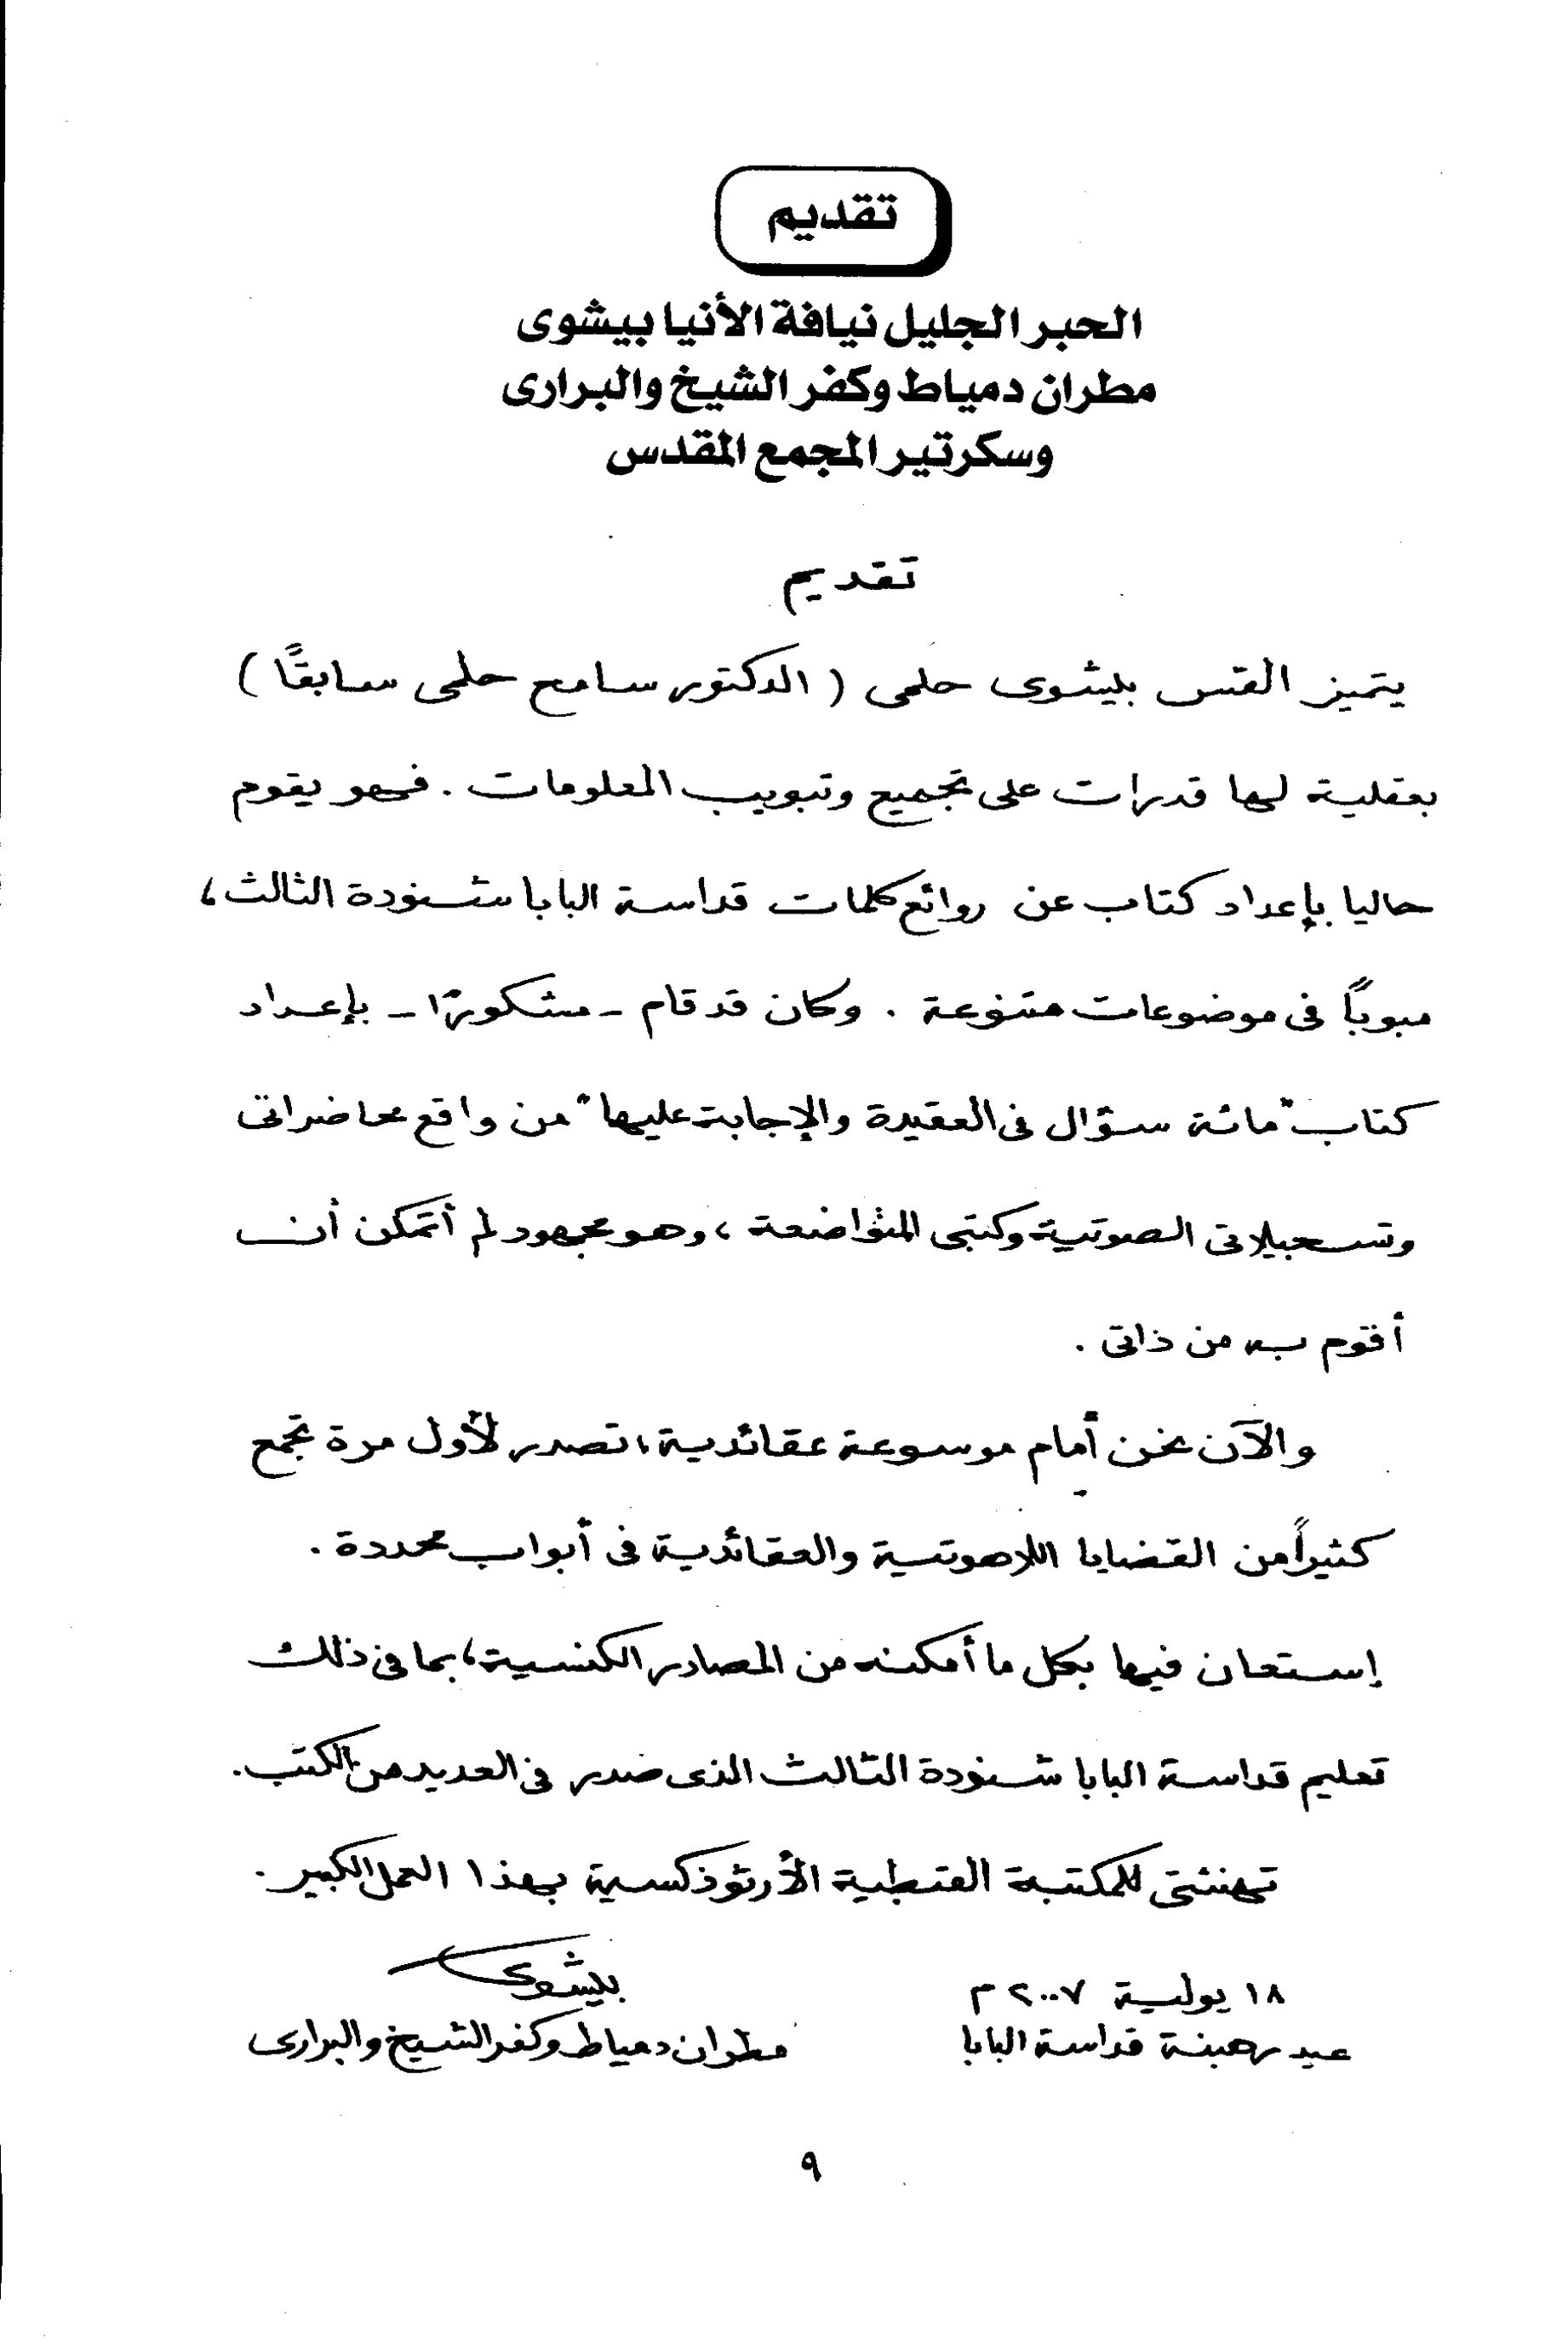 تقديم
الحبر الجليل نيافة الأنيا بيشوى
مطران دمياط وكفر الشيخ والبرارى
وسكرتير المجمع المقدس
تقديم
يتميز القس بيشوى حلمى ( الدكتور سامح حلمى سابقًا )
بعقلية لها قدرات على تجميع وتبويب المعلومات . فهو يقوم
حاليا بإعداد كتاب عن روائع كلمات قداسة البابا شنودة الثالث ،
مبوبًا فى موضوعات متنوعة . وكان قد قام - مشكورًا - بإعداد
كتاب "مائة سؤال فى العقيدة والإجابة عليها" من واقع محاضراتى
وتسجيلاتى الصوتية وكتبى المتواضعة ، وهو مجهود لم أتمكن أن
أقوم به من ذاتى .
والآن نحن أمام موسوعة عقائدية ، تصدر لأول مرة تجمع
كثيراً من القضايا اللاهوتية والعقائدية فى أبواب محددة .
إستعان فيها بكل ما أمكنه من المصادر الكنسية ، بما فى ذلك
تعليم قداسة البابا شنودة الثالث الذى صدر فى العديد من الكتب .
تهنئتى للمكتبة القبطية الأرثوذكسية بهذا العمل الكبير .
١٨ يولية ٢٠٠٧ م
بيشوى
عيد رهبنة قداسة البابا
مطران دمياط وكفر الشيخ والبرارى
٩